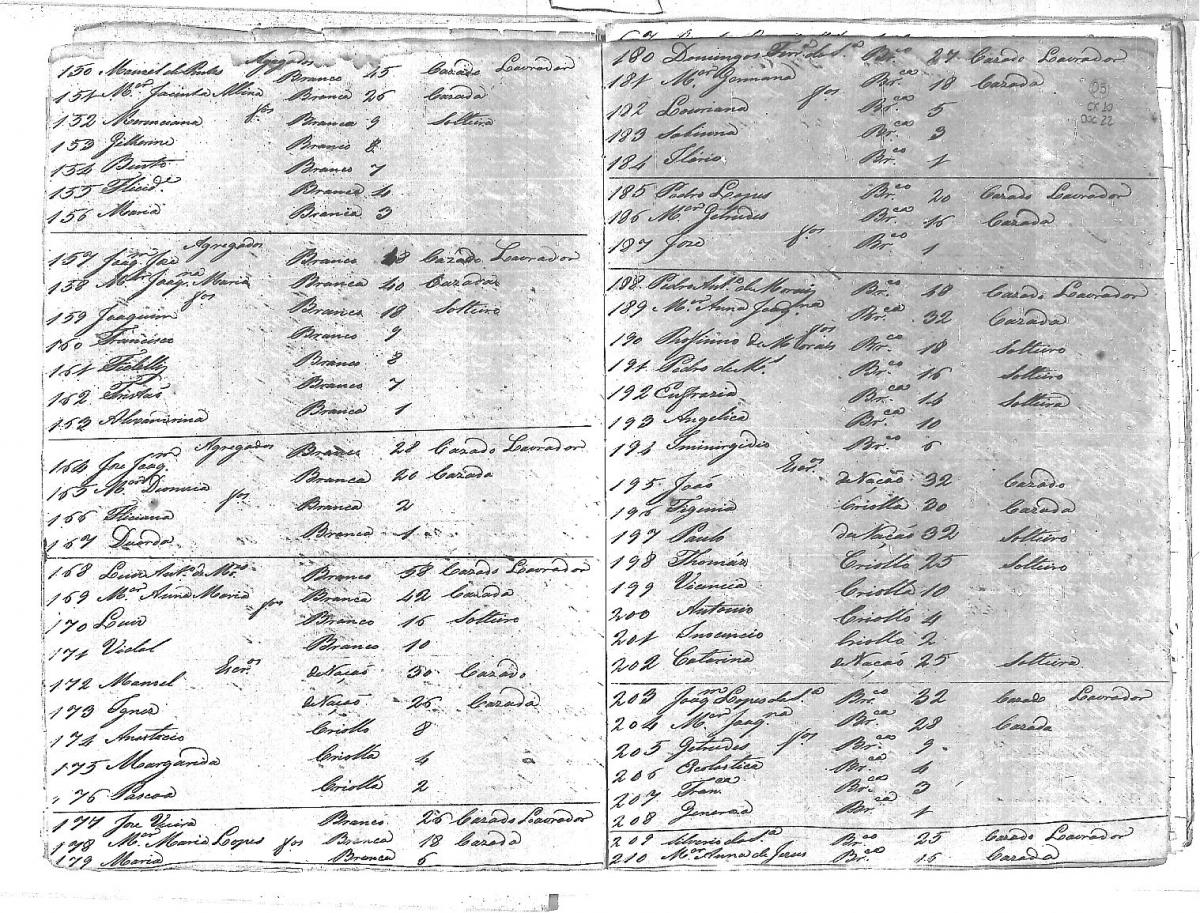 Agregados
150 Manoel de Pontes Branco 45 Cazado Lavrador
151 M.er Jacinta Maria Branca 26 Cazada
fos
152 Merenciana Branca 9 Solteira
153 Gilherme Branco 8
154 Bento Branco 7
155 Flicid.e Branca 4
156 Maria Branca 3
Agregados
157 Joaq.m Joze Branco Cazado Lavrador
158 M.er Joaq.na Maria Branca 40 Cazada
fos
159 Joaquim Branco 18 Solteiro
160 Francisco Branco 9
161 Fidelles Branco 8
162 Tristaõ Branco 7
163 Alexandrina Branca 1
Agregados
164 Joze Joaq.m Branco 28 Cazado Lavrador
165 M.er Dionizia Branca 20 Cazada
fos
166 Fliciana Branca 2
167 Branca 1
168 Luis Ant.o de Branco 58 Cazado Lavrador
169 M.er Anna Maria Branca 42 Cazada
fos
170 Luis Branco 16 Solteiro
171 Vidal Branco 10
Escr.os
172 Manoel de Naçaõ 30 Cazado
173 Ignez de Naçaõ 26 Cazada
174 Anastacio Criollo 8
175 Margarida Criolla 4
176 Pascoa Criolla 2
177 Joze Vieira Branco 26 Cazado Lavrador
178 M.er Maria Lopes Branca 18 Cazada
fos
179 Maria Branca 6
180 Domingos Ferr.a de S.a Br.co 27 Cazado Lavrador
181 M.er Germana Br.ca 18 Cazada
fos
182 Louriana Br.ca 5
183 Sabinna Br.ca 3
184 Ilario Br.co 1
185 Pedro Lopes Br.co 20 Cazado Lavrador
186 M.er Getrudes Br.ca 16 Cazada
fos
187 Joze Br.co 1
188 Pedro Ant.o de Morais Br.co 48 Cazado Lavrador
189 M.er Anna Joaq.na Br.ca 32 Cazada
fos
190 de Morais Br.co 18 Solteiro
191 Pedro de M.s Br.co 16 Solteiro
192 Eufrazia Br.ca 14 Solteira
193 Angelica Br.ca 10
194 Iminirgidio Br.co 6
Escr.os
195 Joaõ de Naçaõ 32 Cazado
196 Figenia Criolla 30 Cazada
197 Paulo de Naçaõ 32 Solteiro
198 Thomás Criollo 25 Solteiro
199 Vicencia Criolla 10
200 Antonio Criollo 4
201 Inocencio Criollo 2
202 Catarina de Naçaõ 25 Solteira
203 Joaq.m Lopes de S.a Br.co 32 Cazado Lavrador
204 M.er Joaq.na Br.ca 28 Cazada
fos
205 Getrudes Br.ca 9
206 Escolastica Br.ca 4
207 Fran.ca Br.ca 3
208 Generoza Br.ca 1
209 de S.a Br.co 25 Cazado Lavrador
210 M.er Anna de Jezus Br.ca 15 Cazada
DOC 22